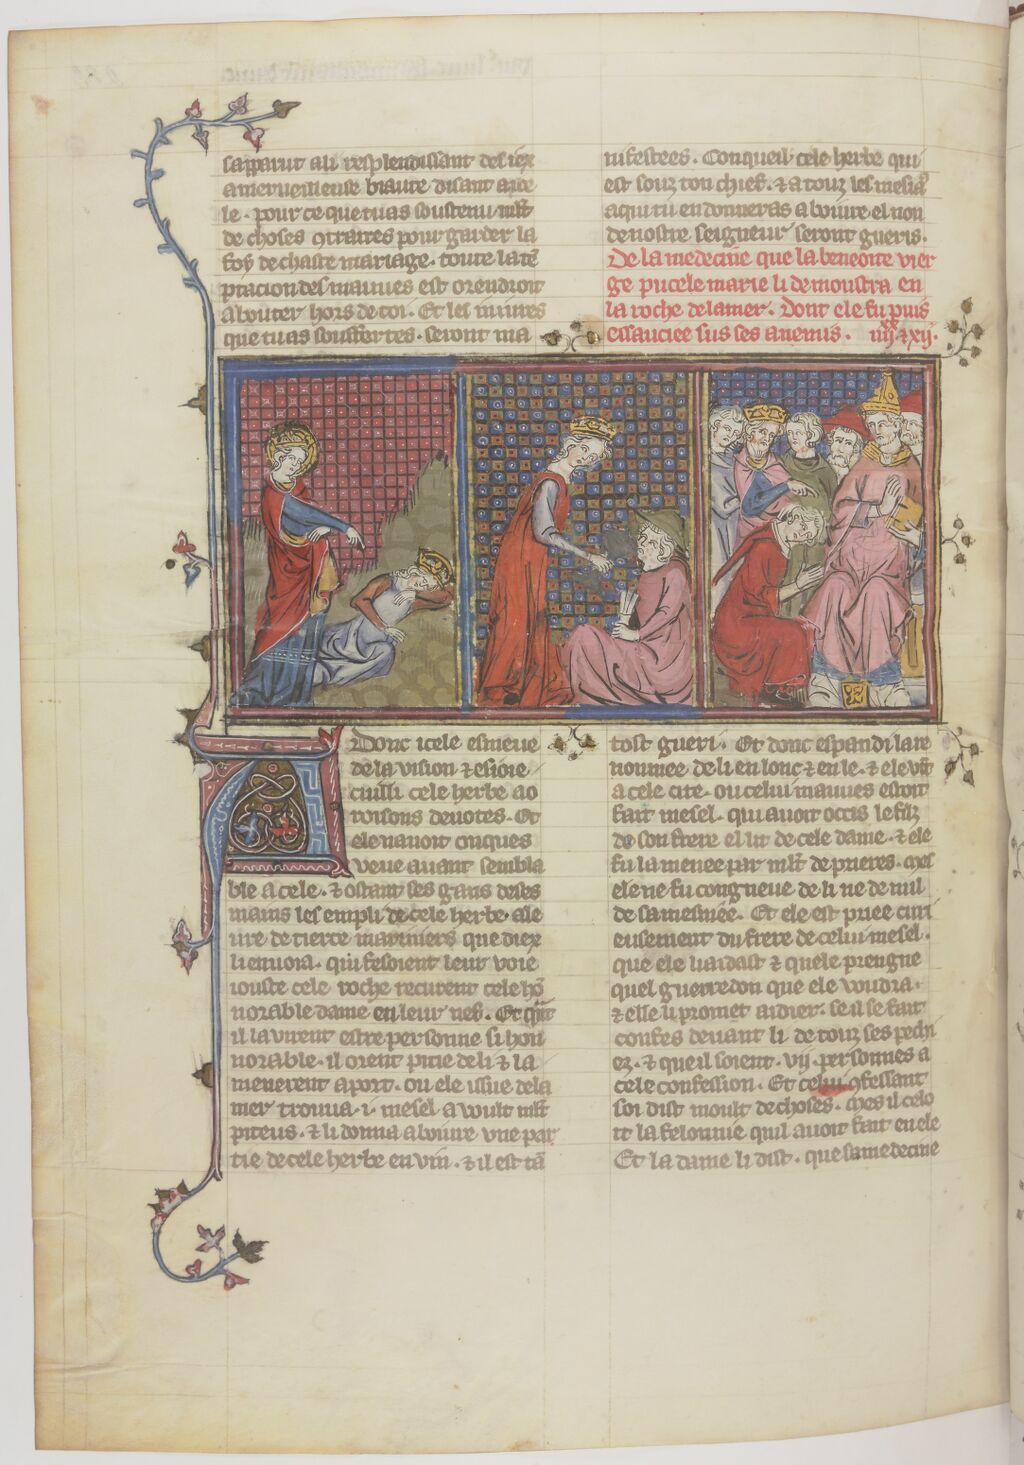 sapparut a li resplendissant des iex
a merueilleuse biaute disant a ice
le . pour ce que tu as soustenu mlt
de choses 9traires pour garder la
foy de chaste mariage . toute la tē
ptacion des mauues est orendroit
a bouter hors de toi . Et les iniures
que tu as souffertes . seront ma
nifestees . Conqueil cele herbe qui
est souz ton chief . ⁊ a touz les mesiax
a qui tu en donneras a boiure el non
de nostre seigneur seront gueris .
De la medecine que la beneoite vier
ge pucele marie li demoustra en
la roche de la mer . Dont ele fu puis
essauciee sus ses anemis . iiij ⁊ xij .
Adonc icele esmeue
de la vision ⁊ esioie
cuilli cele herbe a o
roisons deuotes . Et
ele nauoit onques
veue auant sembla
ble a cele . ⁊ ostant ses gans de ses
mains les empli de cele herbe . A le
ure de tierce mariniers que diex
li enuoia . qui fesoient leur voie
iouste cele roche recurent cele hō
norable dame en leur nef . Et quāt
il la virent estre personne si hon
norable . il orent pitie de li ⁊ la
menerent a port . ou ele issue de la
mer trouua . i . mesel a voult mlt
piteus . ⁊ li donna a boiure vne par
tie de cele herbe en vin . ⁊ il est tā
tost gueri . Et donc espandi la re
nommee de li en lonc ⁊ en le . ⁊ ele vīt
a cele cite . ou celui mauues estoit
fait mesel . qui auoit occis le filz
de son frere el lit de cele dame . ⁊ ele
fu la menee par mlt de prieres . mes
ele ne fu congneue de li ne de nul
de sa mesniee . Et ele est priee curi
eusement du frere de celui mesel .
que ele li aidast ⁊ quele prengne
quel guerredon que ele voudra .
⁊ elle li promet aidier . se il se fait
confes deuant li de touz ses pechi
ez . ⁊ que il soient . vij . personnes a
cele confession . Et celui 9fessant
soi dist moult de choses . Mes il celo
it la felonnie quil auoit fait en ele
Et la dame li dist . que sa medecine